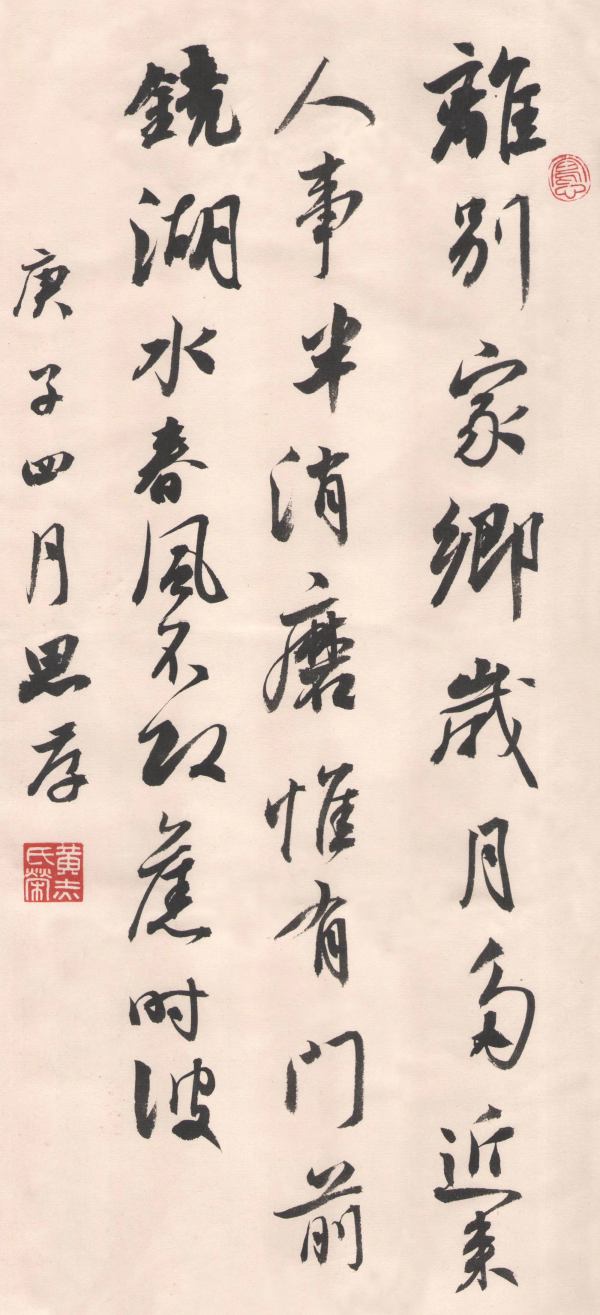 離别家鄉歲月多近来
人事半消磨惟有门前
鏡湖水春風不改舊时波
庚子四月思存
黄志
氏榮